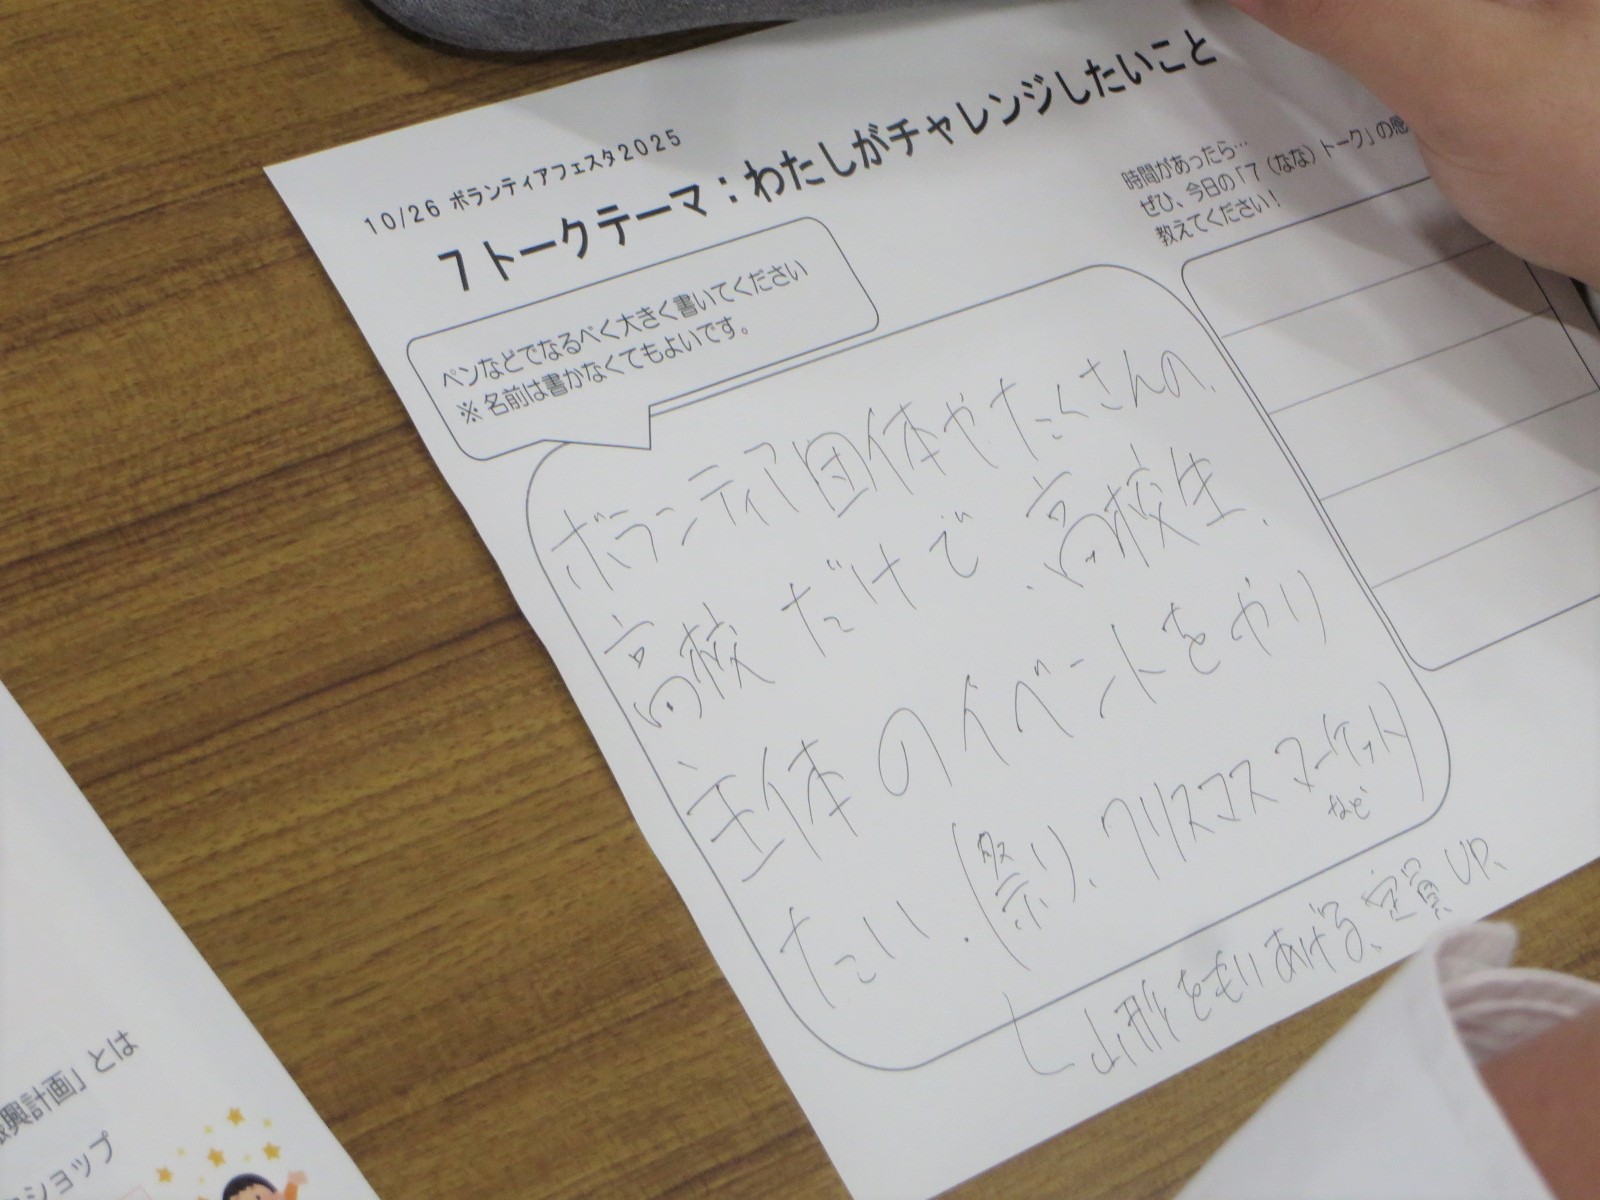 10/26 ボランティアフェスタ2025
7トークテーマ：わたしがチャレンジしたいこと
ペンなどでなるべく大きく書いてください
※名前は書かなくてもよいです。
ボランティア団体やたくさんの
高校だけで、高校生
主体のイベントをやり
たい。(祭り)、クリスマスマーケット
など
山形をもりあげる、定員UP、
時間があったら…
ぜひ、今日の「7（なな）トーク」の感
教えてください！
興計画」とは
ショップ